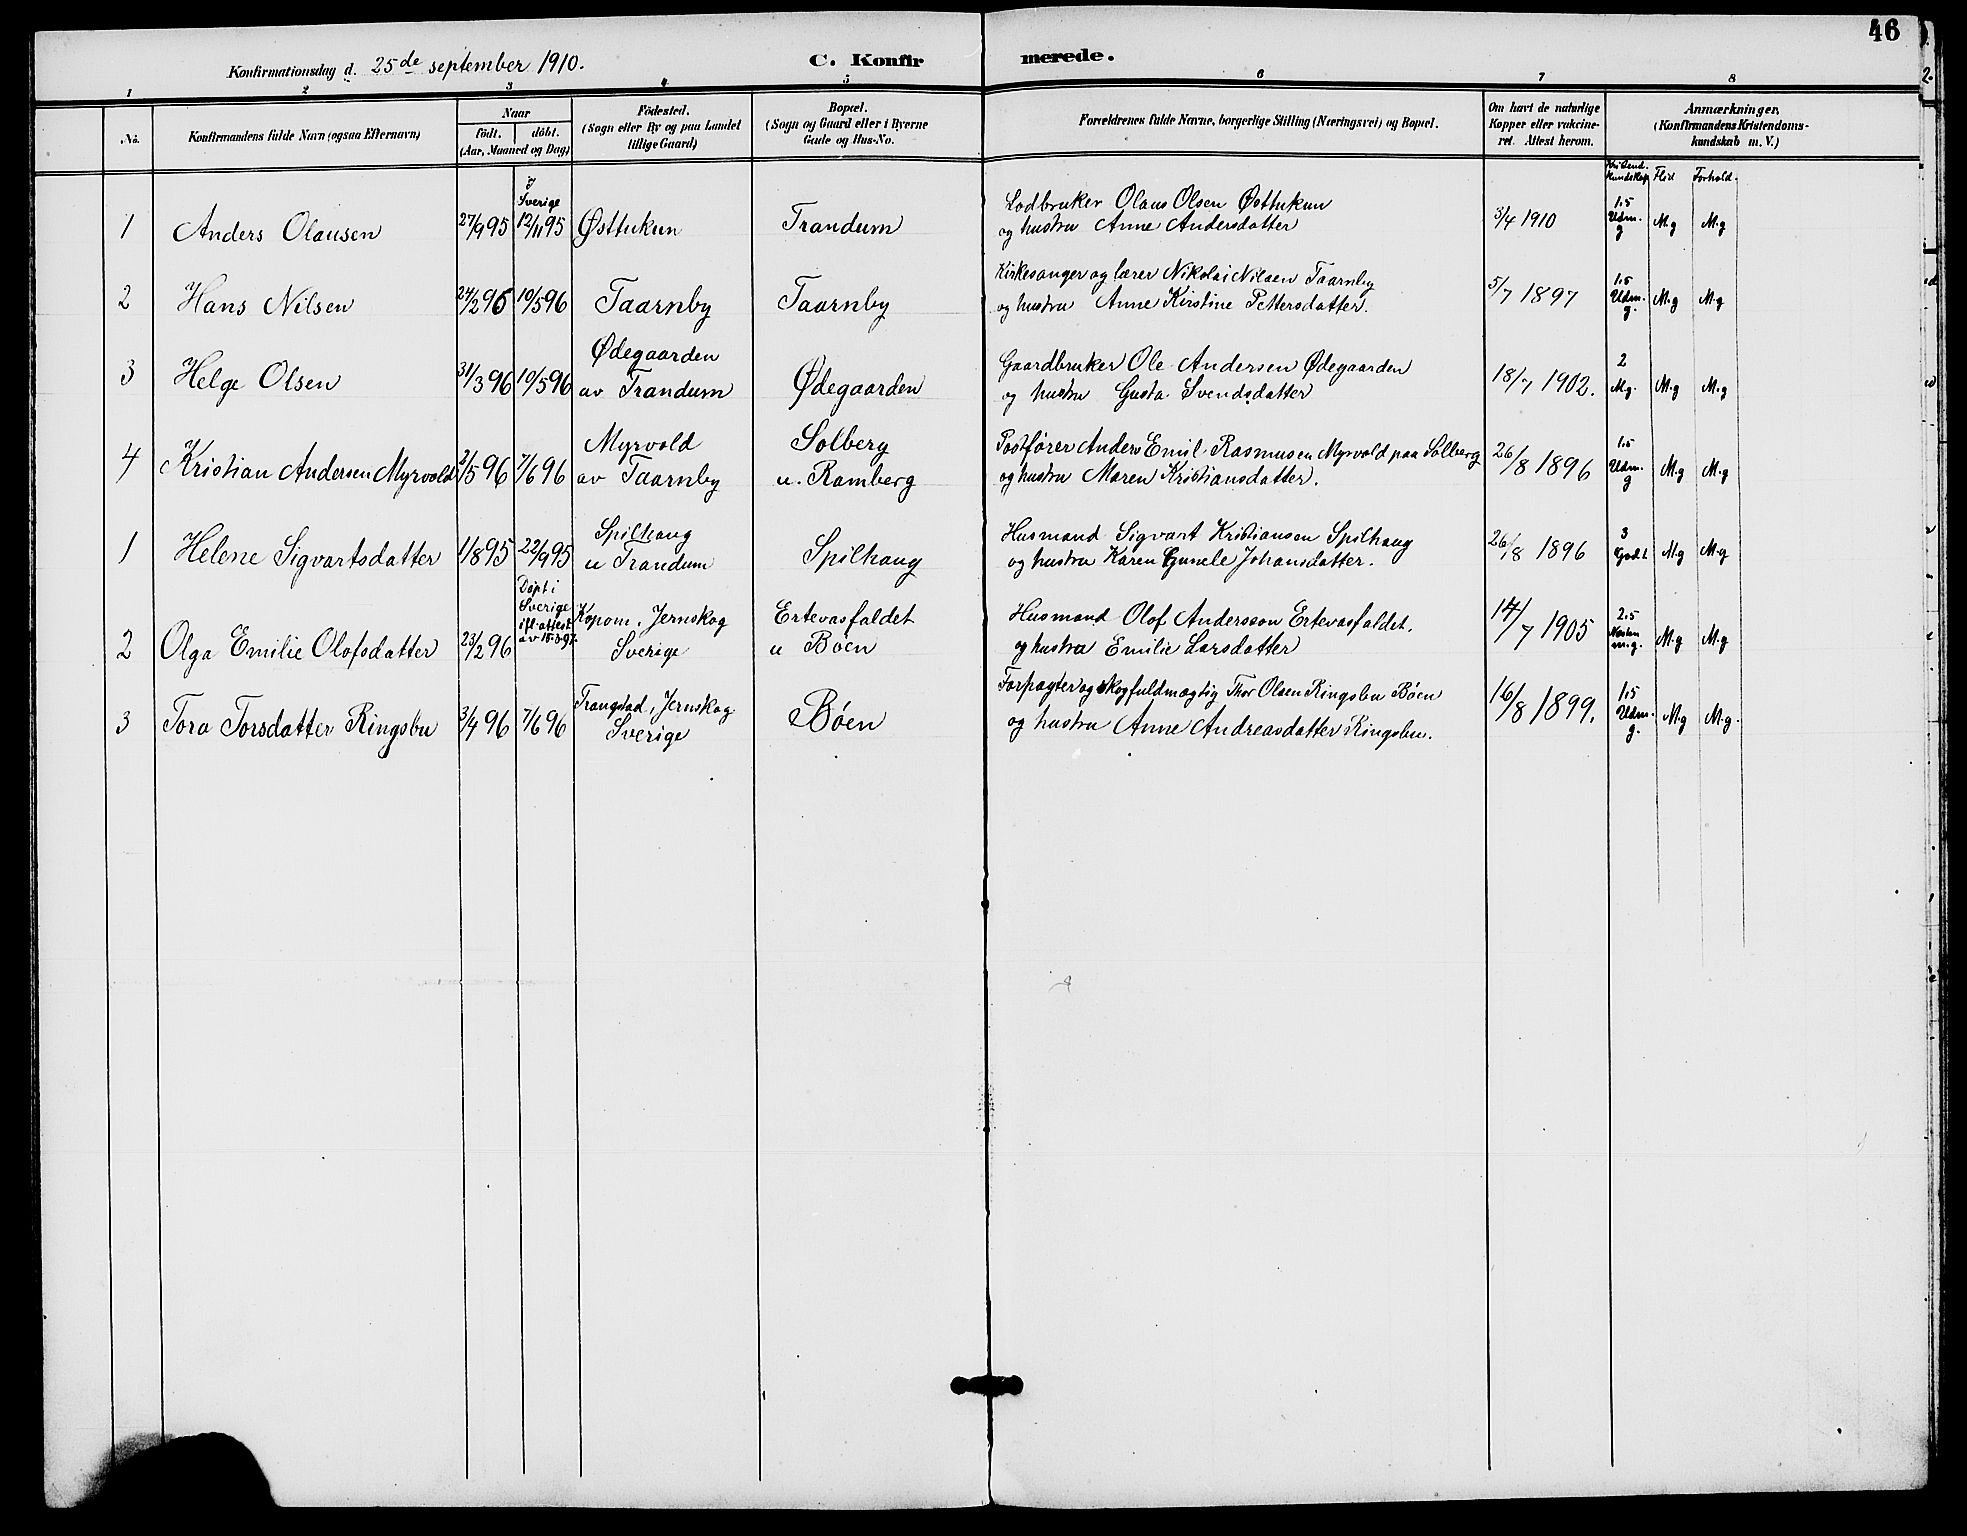 46
Konfirmationsdag d. 25de september 1910. C. Konfirmerede.
1 2 3 4 5 6 7 8
No.
Konfirmandens fulde Navn (ogsaa Efternavn)
Naar
født. døbt.
(Aar, Maaned og Dag)
Fødested.
(Sogn eller By og paa Landet
tillige Gaard)
Bopæl.
(Sogn og Gaard eller i Byerne
Gade og Hus-No.
Forældrenes fulde Navne, borgerlige Stilling (Næringsvei) og Bopæl.
Om havt de naturlige
Kopper eller vakcine-
ret. Attest herom.
Anmærkninger,
(Konfirmandens Kristendoms-
kundskab m. V.)
Kristend. kundskap Flid Forhold.
1 Anders Olausen 27/9 95 I Sverige 12/11 95 Østtukun Trandum
Lodbruker Olaus Olsen Østtukun
og hustru Anne Andersdatter
3/4 1910 1.5 Udm. g M.g M.g
2 Hans Nilsen 24/2 96 10/5 96 Taarnby Taarnby
Kirkesanger og lærer Nikolai Nilsen Taarnby
og hustru Anne Kirstine Pettersdatter.
5/7 1897 1.5 Udm. g. M.g M.g
3 Helge Olsen 31/3 96 10/5 96 Ødegaarden av Trandum Ødegaarden
Gaardbruker Ole Andersen Ødegaarden
og hustru Gusta Svendsdatter
18/7 1902. 2 Mg. M.g M.g
4 Kristian Andersen Myrvold 2/5 96 7/6 96 Myrvold av Taarnby Solberg u. Ramberg
Postfører Anders Emil Rasmusen Myrvold paa Solberg
og hustru Maren Kristiansdatter.
26/8 1896 1.5 Udm. g M.g M.g
1 Helene Sigvartsdatter 1/8 95 22/9 95 Spilhaug u Trandum Spilhaug
Husmand Sigvart Kristiansen Spilhaug
og hustru Karen Gunele Johansdatter.
26/8 1896 3 Godt M.g M.g
2 Olga Emilie Olofsdatter 23/2 96 Døpt i Sverige ifl. attest av 15-3-97. Kopom, Jernskog Sverige Ertevasfaldet u Bøen
Husmand Olof Andersson Ertevasfaldet.
og hustru Emilie Larsdatter
14/7 1905 2.5 Næsten m.g. M.g M.g
3 Tora Torsdatter Ringsbu 3/4 96 7/6 96 Trangstad, Jernskog Sverige Bøen
Forpagter og skogfuldmægtig Thor Olsen Ringsbu Bøen
og hustru Anne Andreasdatter Ringsbu.
16/8 1899. 1.5 Udm. g. M.g M.g.